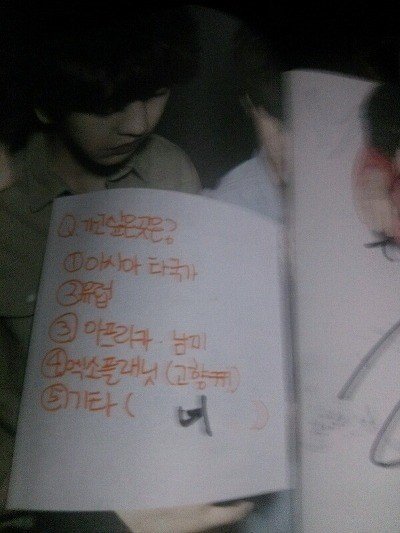 Q. 가고싶은곳은?
① 아시아 타국가
② 유럽
③ 아프리카·남미
④ 엑소플래닛 (고향ㅠㅠ)
⑤ 기타 ( 네 )